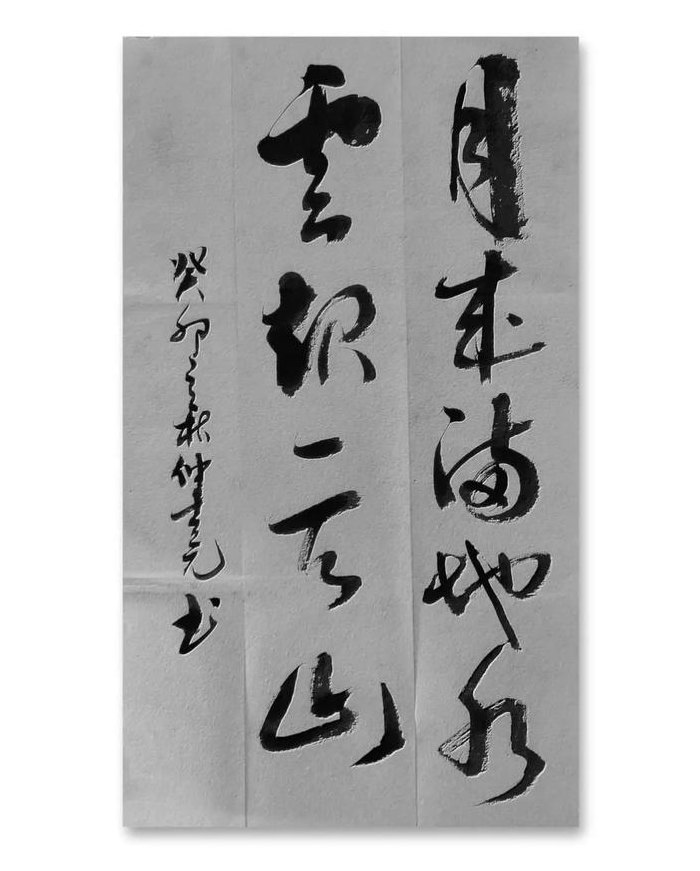 月来满地水
雲起一天山
癸卯之秋仲元书